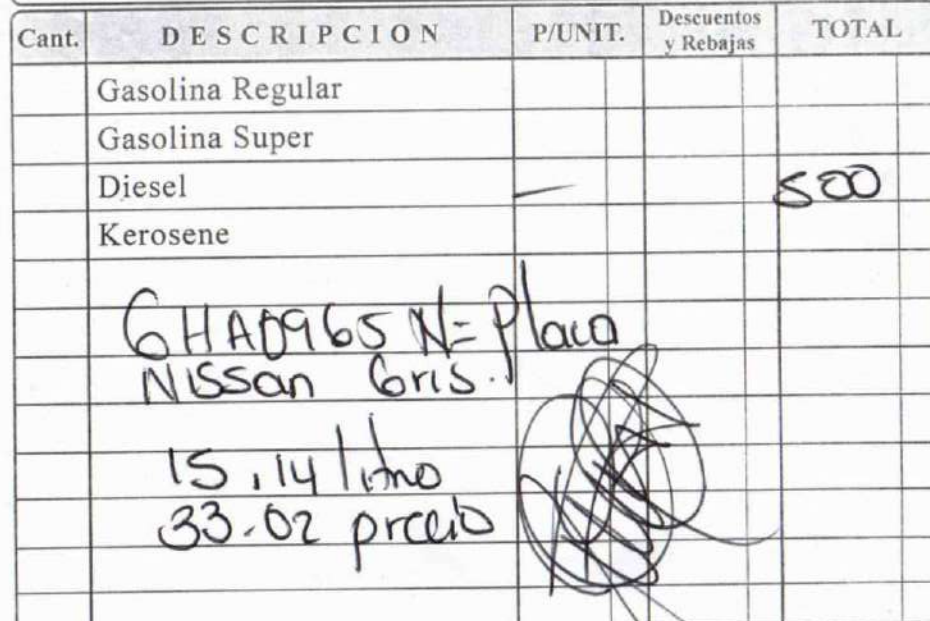 Cant. DESCRIPCION P/UNIT. Descuentos y Rebajas TOTAL
Gasolina Regular
Gasolina Super
Diesel — 500
Kerosene
GHA0965 N= Placa
Nissan Gris.
15.14 litro
33.02 precio